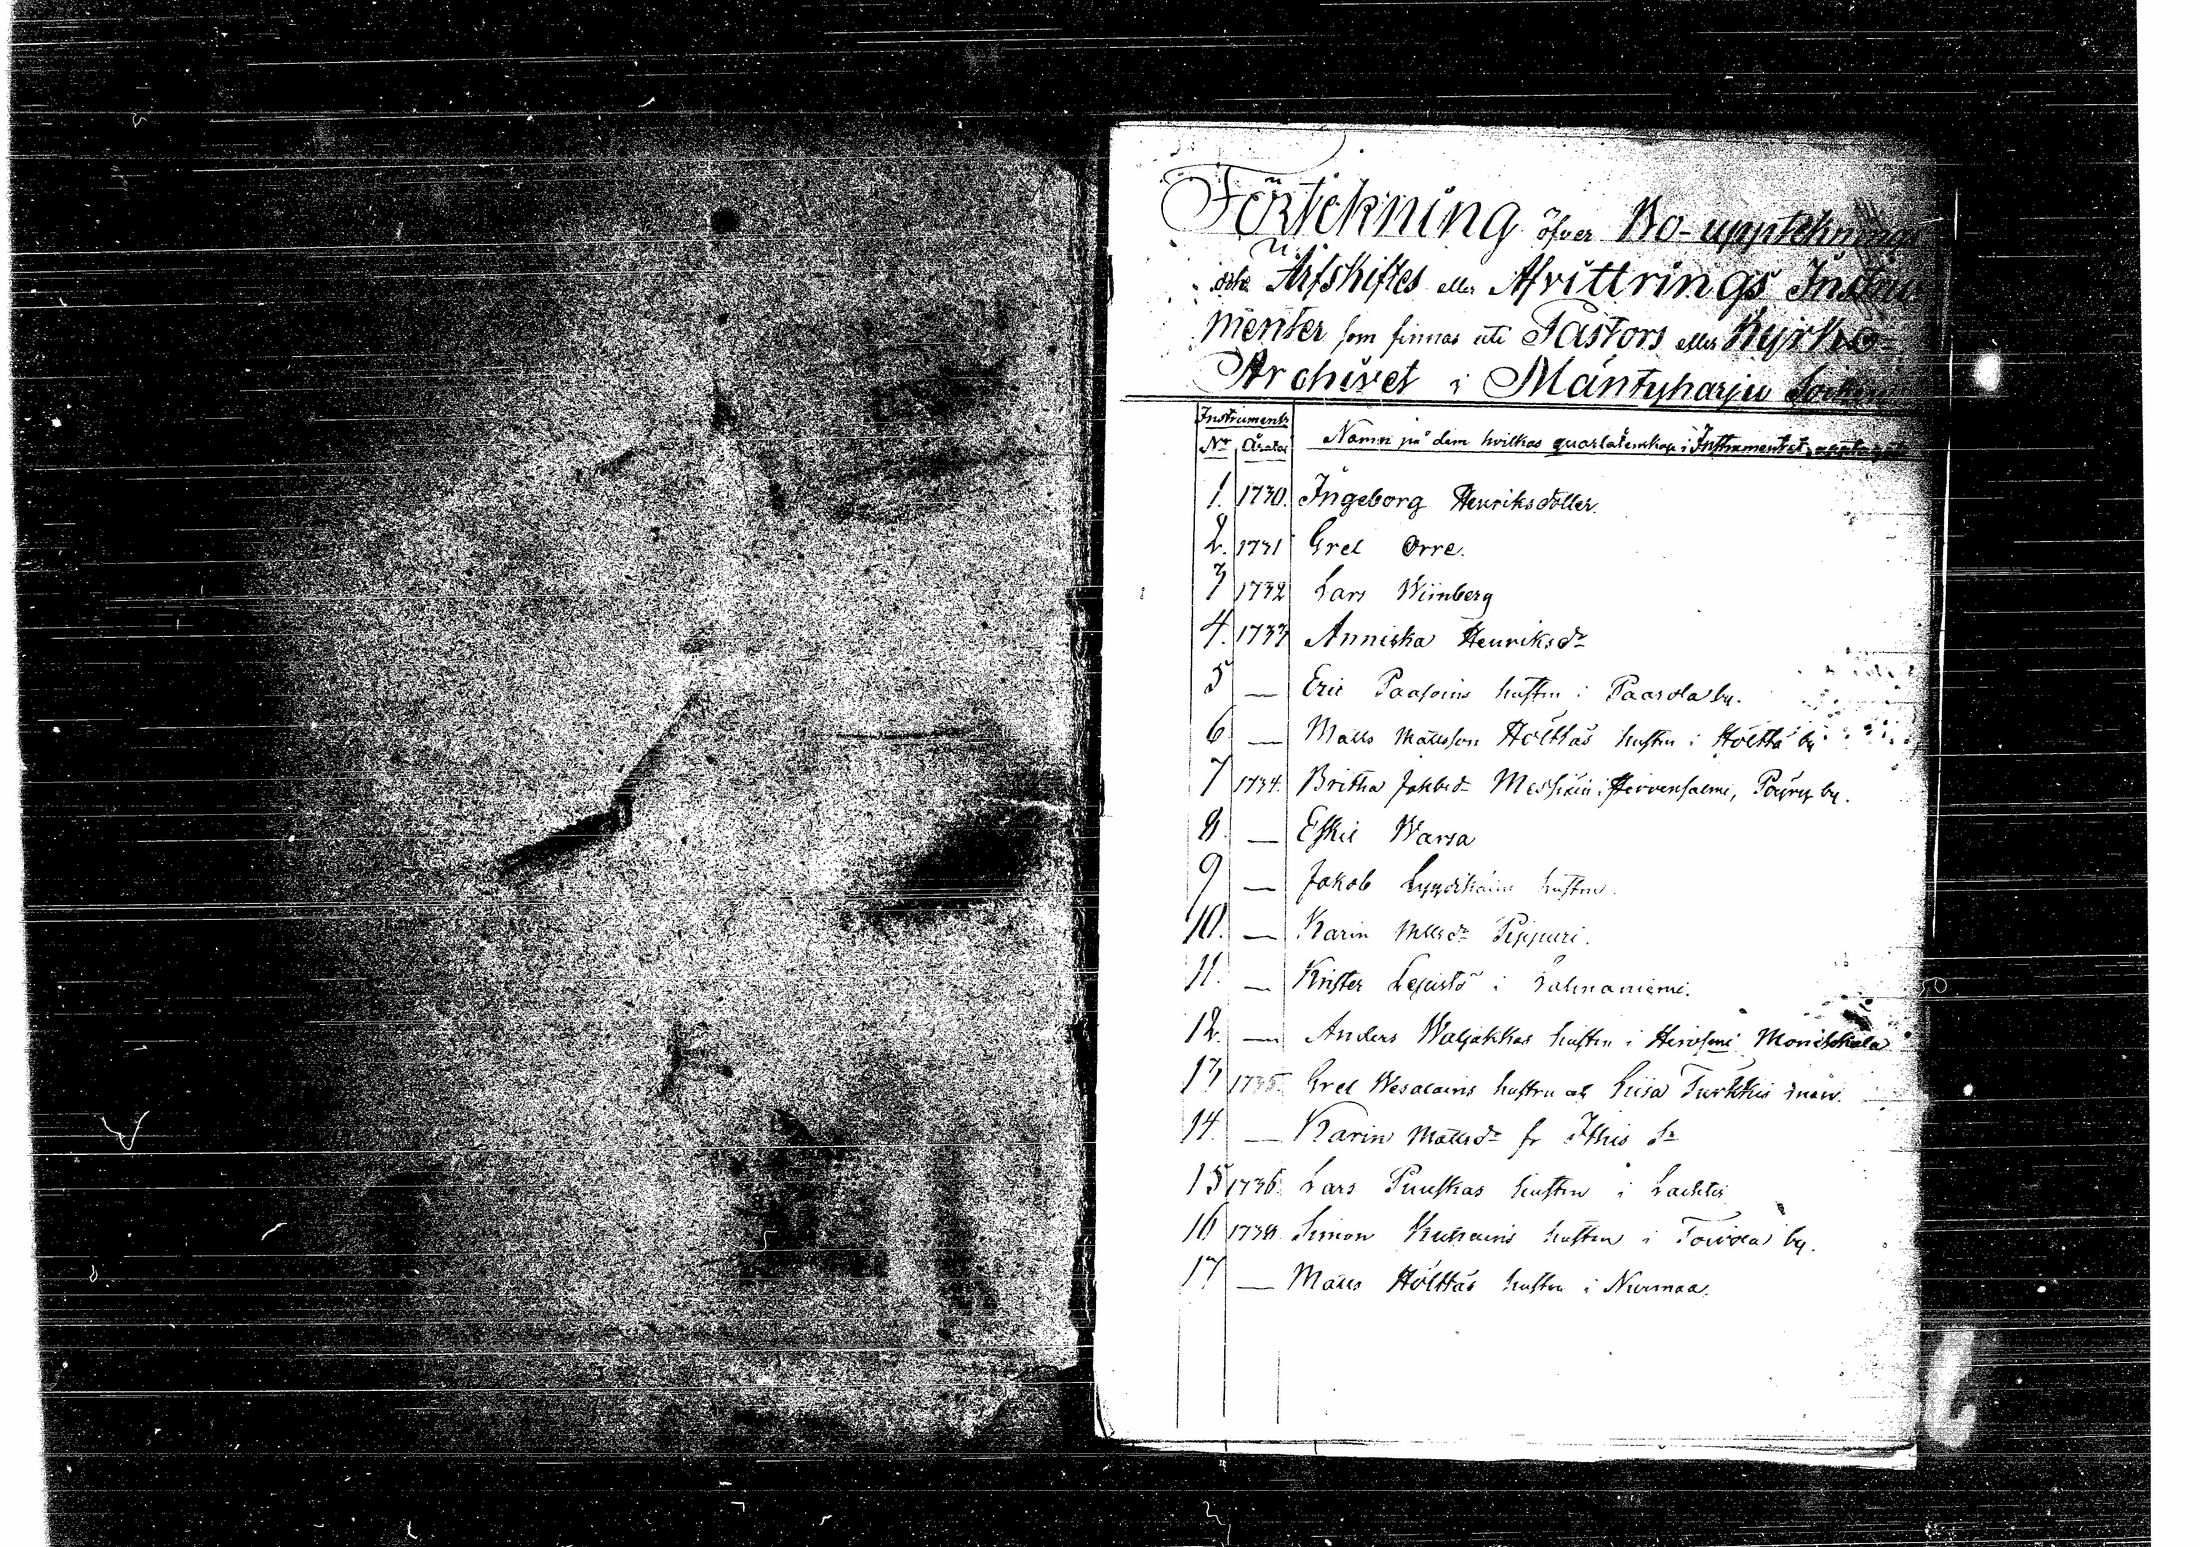 Förtekning öfver Bo-uppteknings
och Arfskiftes eller Afvittrings Instru
menter som finnas uti Pastors eller Kyrko-
Archivet i Mäntyharju Socken
Instruments
Nr Åratal Namn på dem hvilkas quarlåtenskap i Instrumentet upptagit
1. 1730. Ingeborg Henriksdotter.
2. 1731 Gret Orre.
3 1732 Lars Wiinberg
4. 1733 Annicka Henriksdr
5 — Eric Paasoins hustru i Paasola by.
6 — Matts Mattsson Hölttäs hustru i Hölttä by
7 1734. Britha Jakobsdr i Hirvensalmi, Pöyry by.
8. — Eskil Warsa
9 — Jakob hustru.
10. — Karin Mttsdr Pippuri.
11. — Krister i Lahnaniemi.
12. — Anders Waljakkas hustru i
13 1735. Gret Wesalains hustru och Liisa Turkkis
14. — Karin Mattsdr
15 1736. Lars Puuskas hustru i
16 1738. Simon hustru i Toivola by.
17 — Matts Hölttäs hustru i Nurmaa.